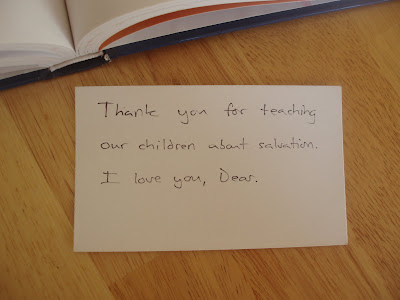 Thank you for teaching
our children about salvation.
I love you, Dear.